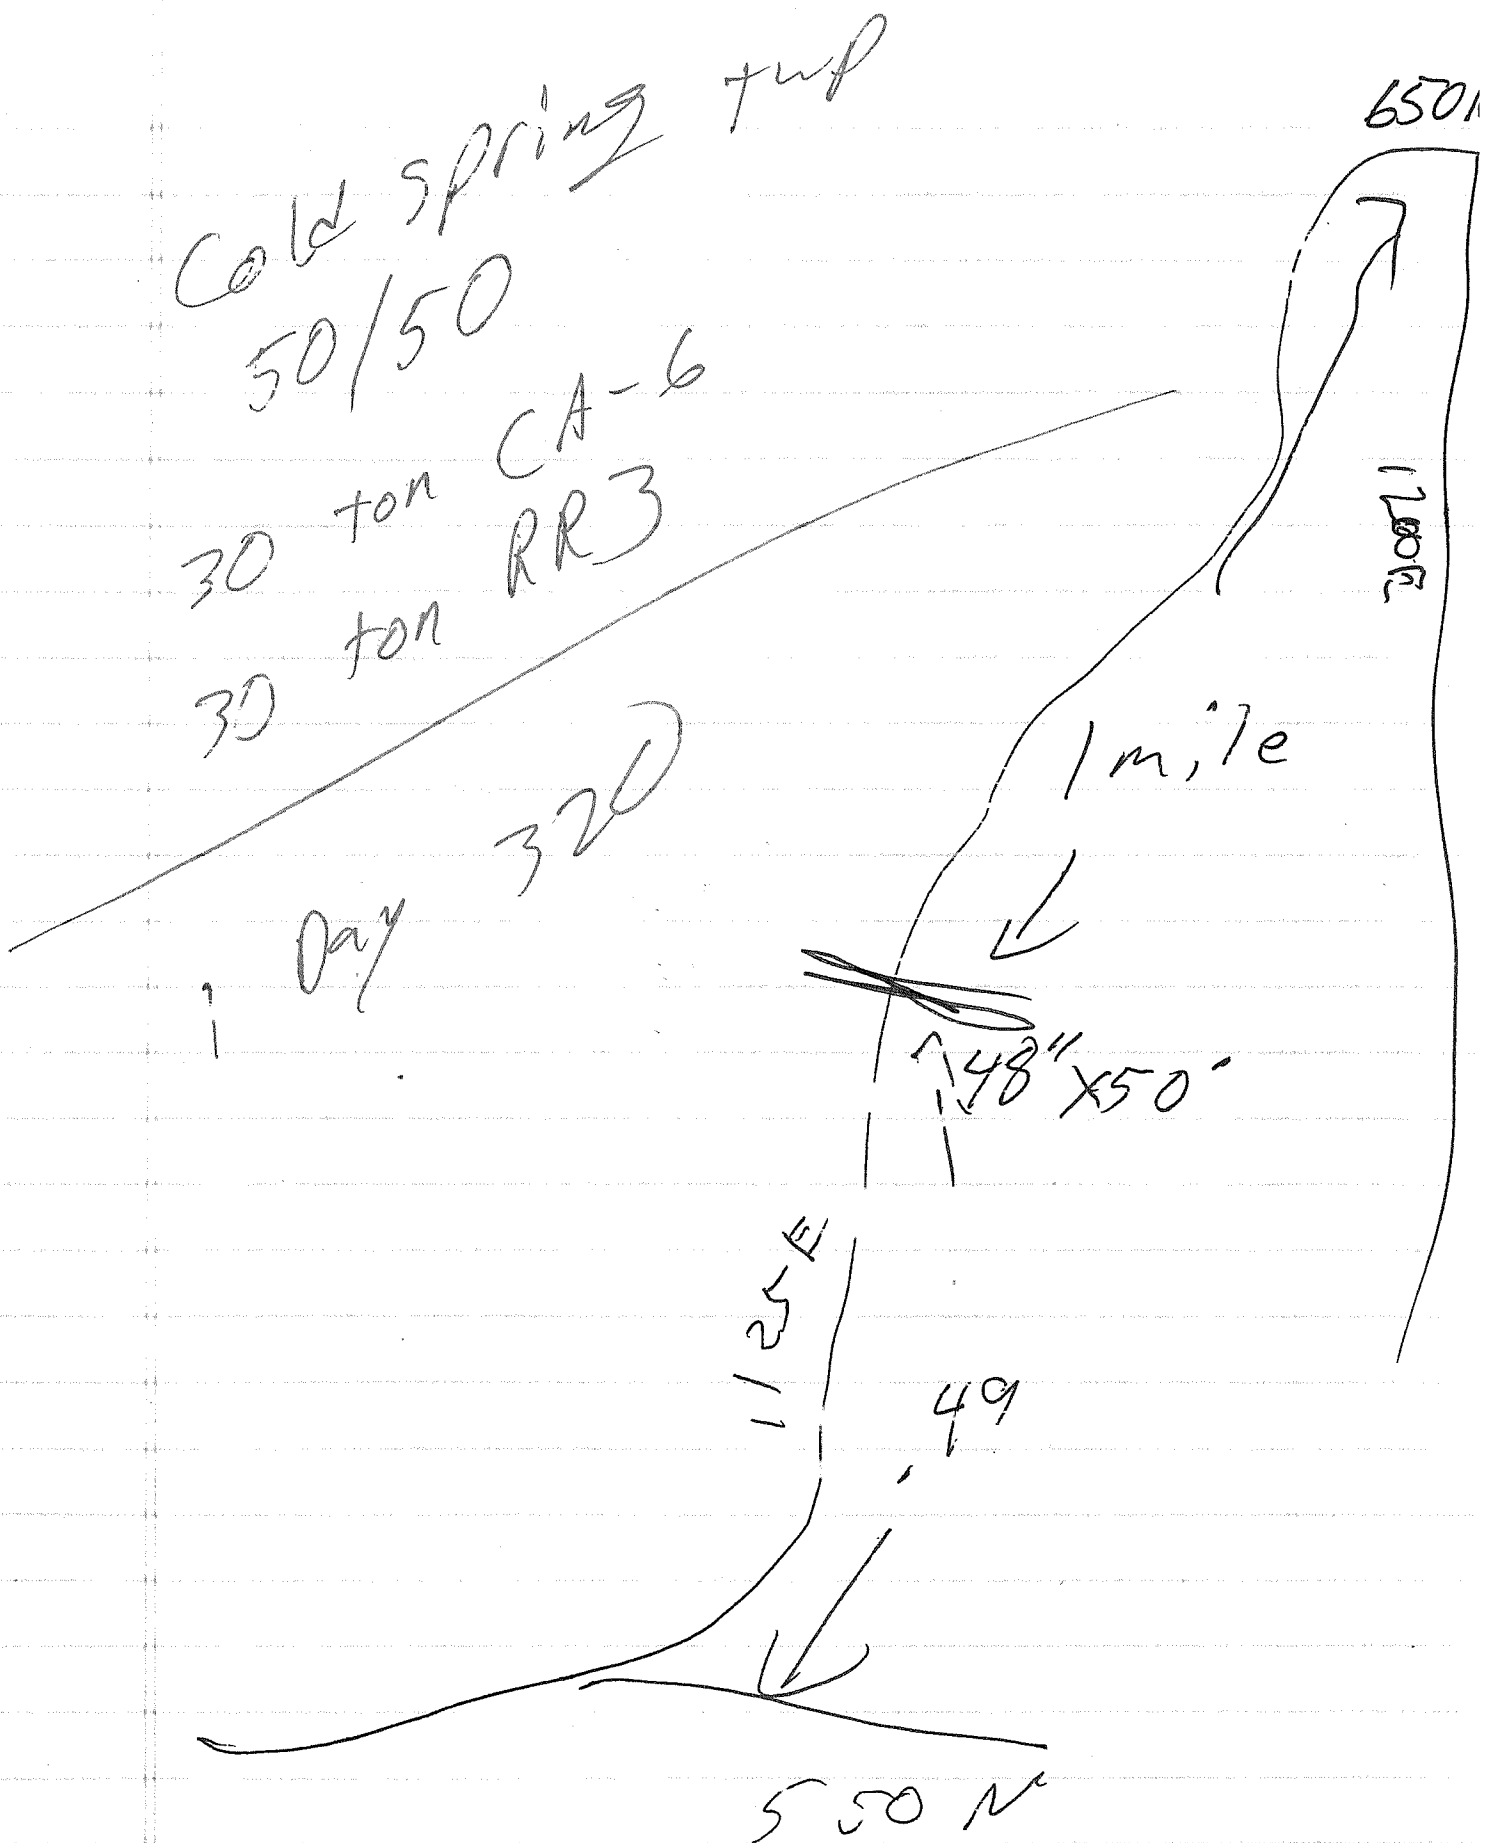 Cold spring twp
50/50
30 ton CA-6
30 ton RR3
1 Day 320
650N
1200E
1 mile
48" x 50'
1125 E
.49
550 N